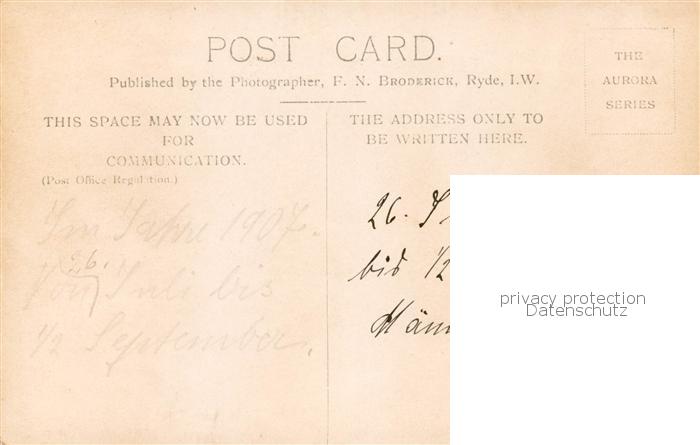 POST CARD.
Published by the Photographer, F. N. BRODERICK, Ryde, I.W.
THE
AURORA
SERIES
THIS SPACE MAY NOW BE USED
FOR
COMMUNICATION.
(Post Office Regulation.)
Im Jahre 1907.
26.
Von Juli bis
1/2 September.
THE ADDRESS ONLY TO
BE WRITTEN HERE.
26. J
bis 1/2
privacy protection
Datenschutz